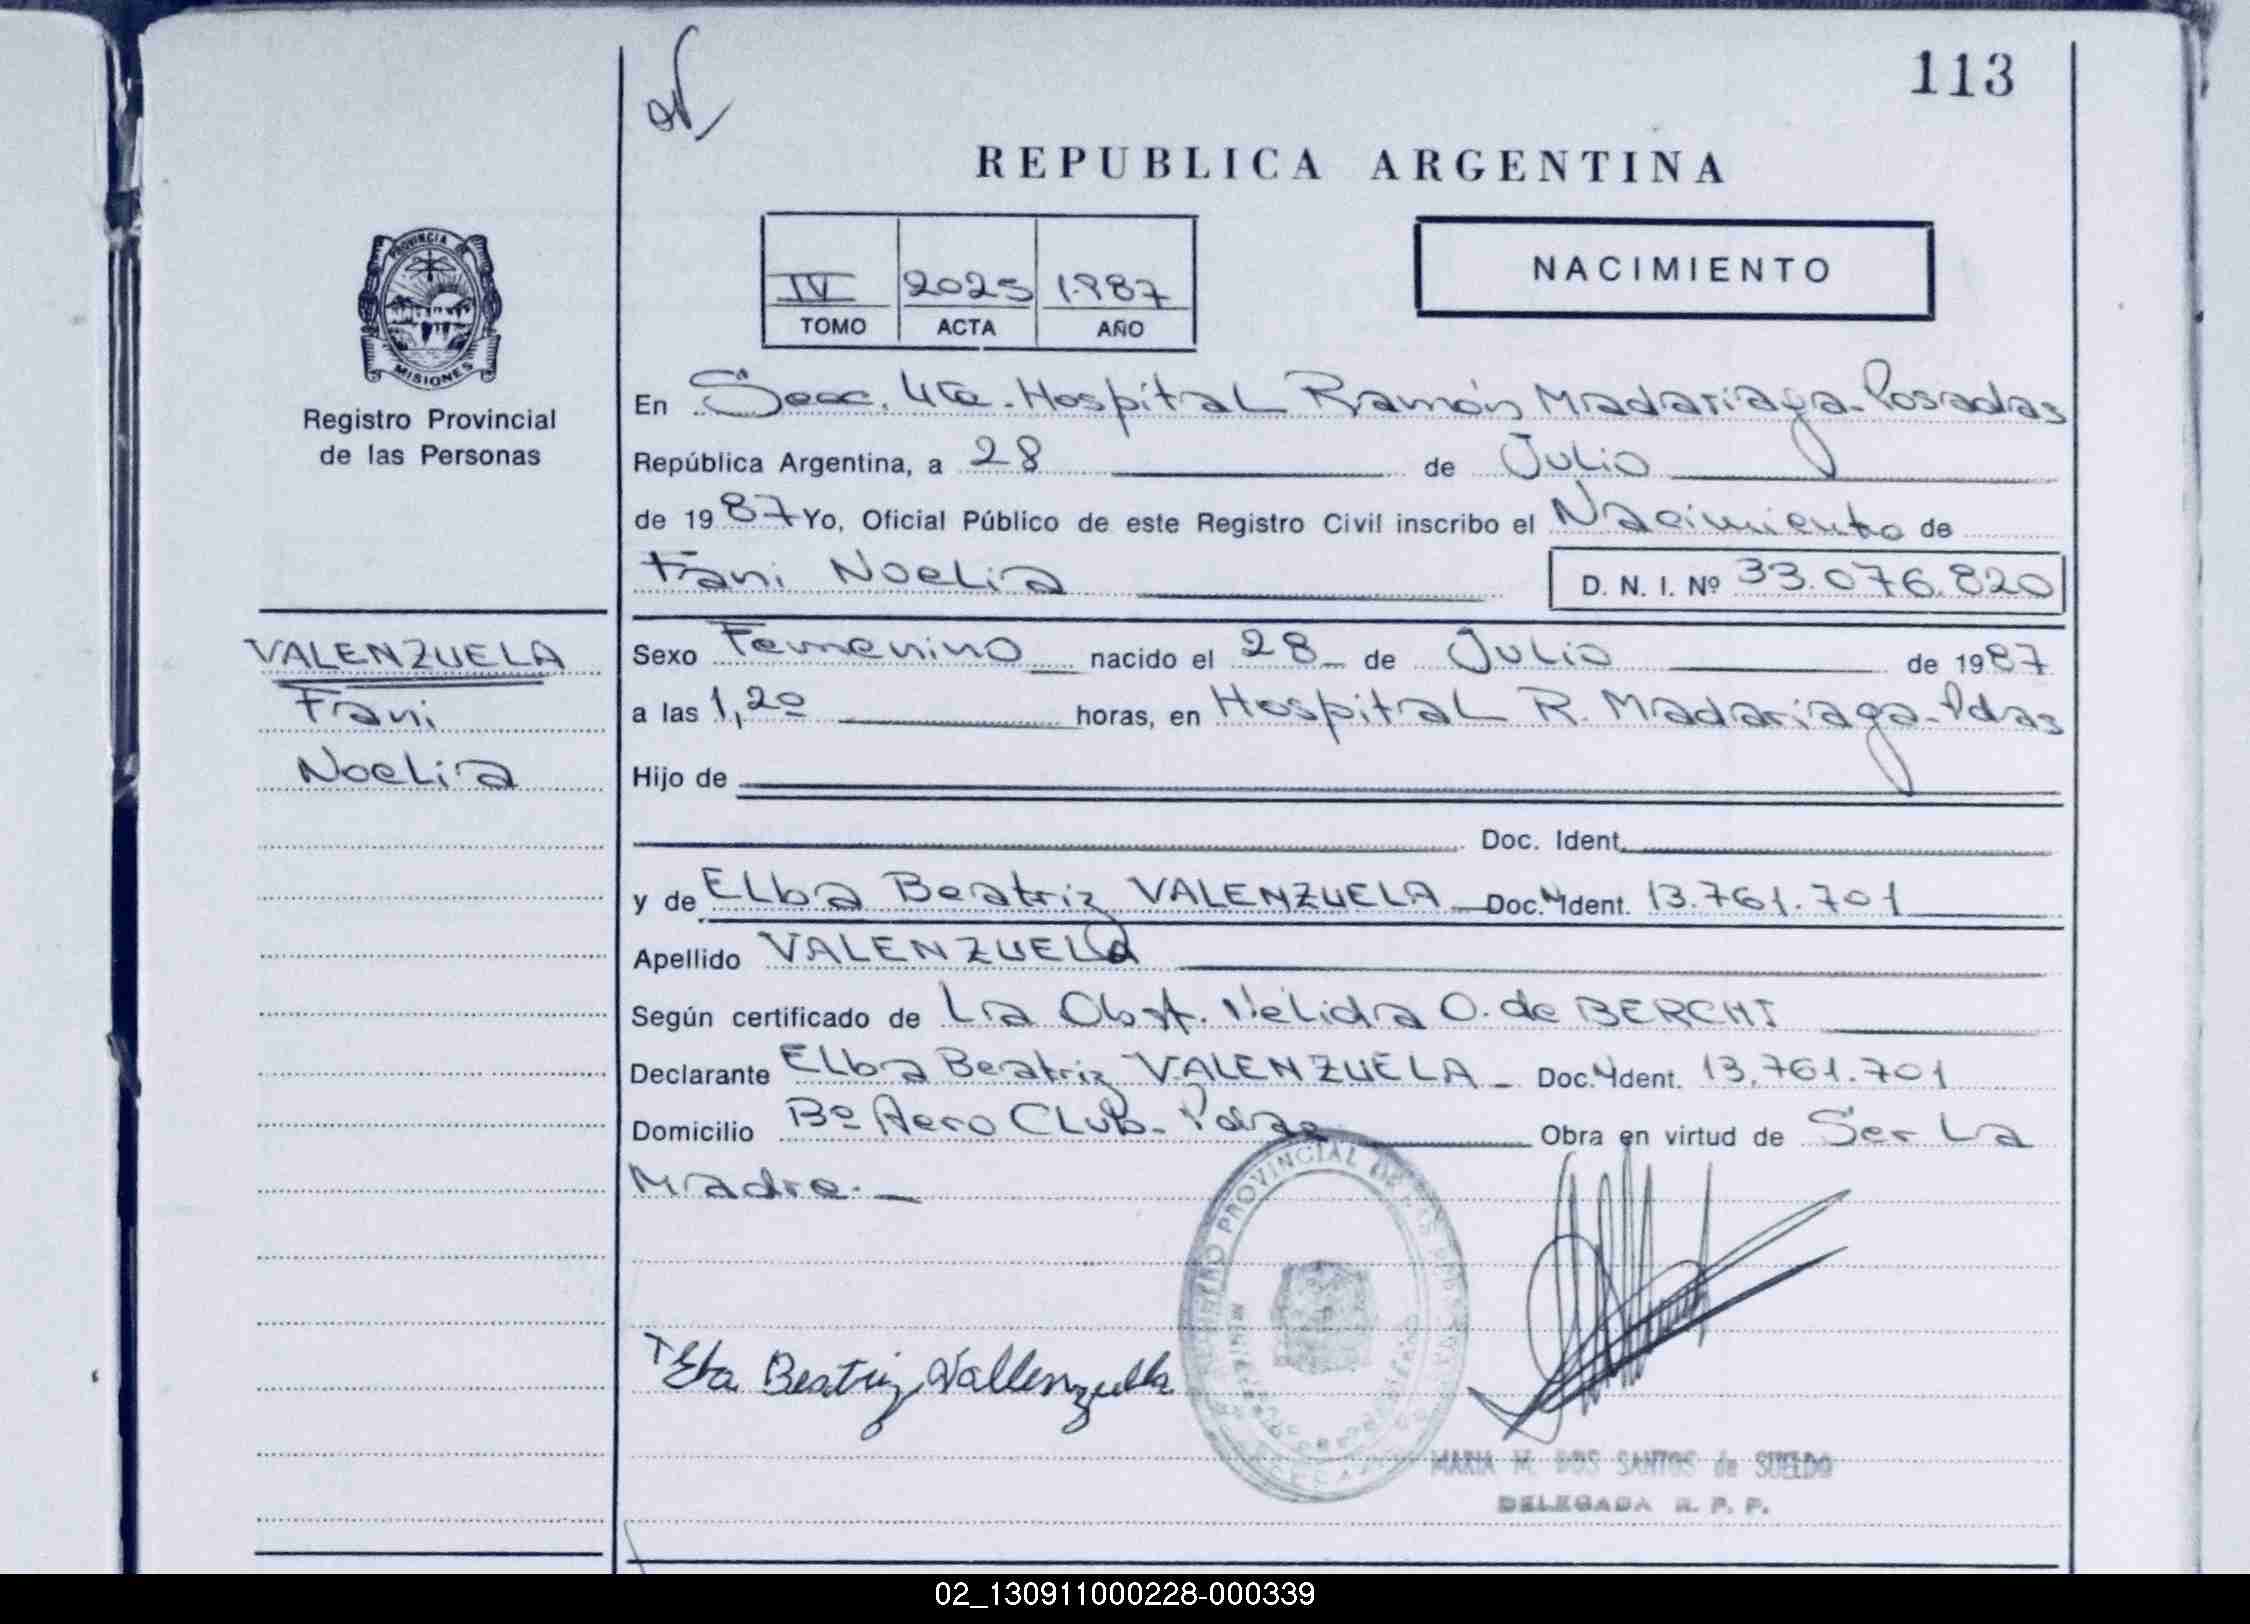 113
REPUBLICA ARGENTINA
IV 2025 1987
TOMO ACTA AÑO
NACIMIENTO
PROVINCIA
MISIONES
Registro Provincial
de las Personas
En Secc. 4ta. Hospital Ramón Madariaga-Posadas
República Argentina, a 28 de Julio
de 1987 Yo, Oficial Público de este Registro Civil inscribo el Nacimiento de
Fani Noelia D. N. I. Nº 33.076.820
VALENZUELA
Fani
Noelia
Sexo Femenino nacido el 28 de Julio de 1987
a las 1,20 horas, en Hospital R. Madariaga-Pdas
Hijo de
Doc. Ident.
y de Elba Beatriz VALENZUELA Doc. Ident. 13.761.701
Apellido VALENZUELA
Según certificado de La Obst. Nélida O. de BERCHI
Declarante Elba Beatriz VALENZUELA - Doc. Ident. 13.761.701
Domicilio Bº Aero Club- Pdas Obra en virtud de Ser La
Madre.-
REGISTRO PROVINCIAL DE LAS
Elba Beatriz Vallenzuella
MARIA M. DOS SANTOS de SUELDO
DELEGADA R. P. P.
02_130911000228-000339